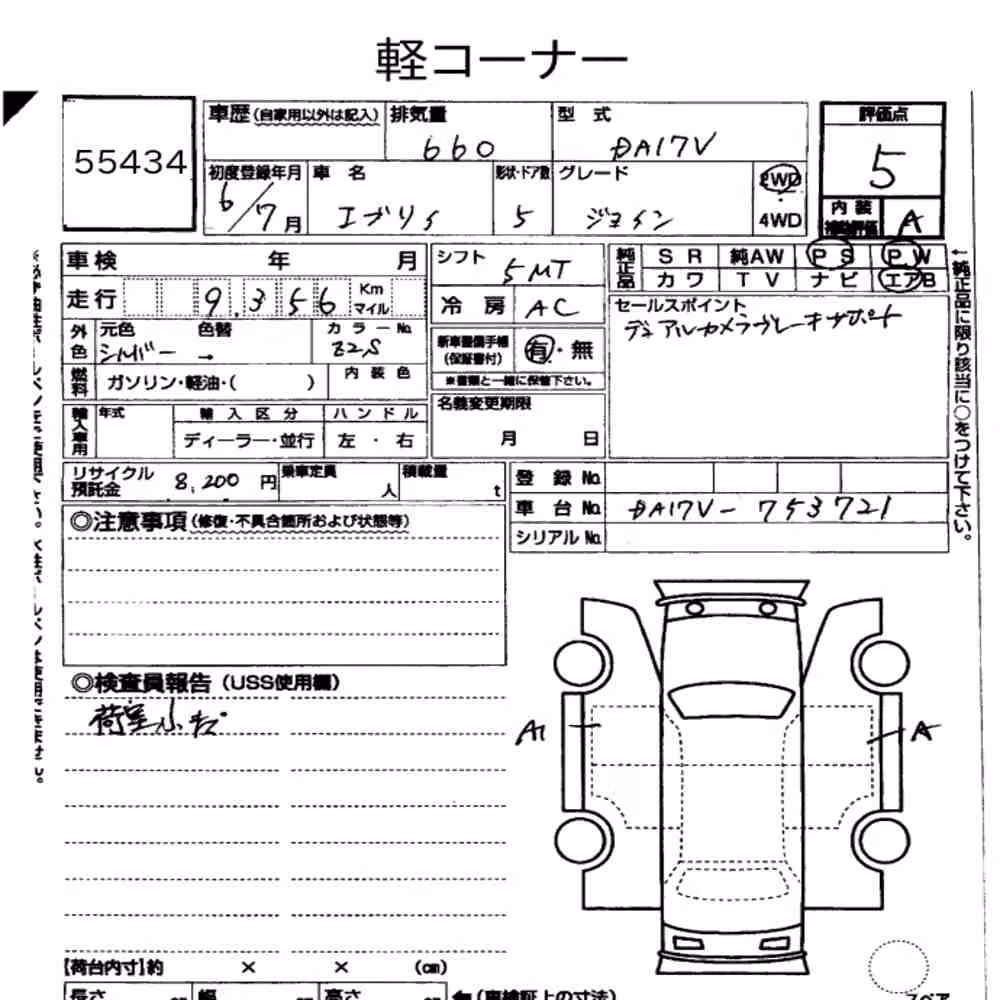 軽コーナー
55434
車歴(自家用以外は記入) 排気量 型式
660 DA17V
評価点
5
初度登録年月 車名 形状・ドア数 グレード 2WD
6/7月 エブリイ 5 ジョイン 4WD
内装補助評価 A
車検 年 月
シフト 5MT
純正品 SR 純AW PS PW
カワ TV ナビ エアB
走行 9,356 Km マイル
冷房 AC
セールスポイント
デュアルカメラブレーキサポート
外色 元色 色替 カラーNo.
シルバー → Z2S
新車整備手帳(保証書付) 有・無
※書類と一緒に保管下さい。
燃料 ガソリン・軽油・( ) 内装色
名義変更期限
月 日
輸入車用 年式 輸入区分 ハンドル
ディーラー・並行 左・右
リサイクル預託金 8,200円 乗車定員 人 積載量 t
登録No.
車台No. DA17V-753721
シリアルNo.
◎注意事項(修復・不具合箇所および状態等)
◎検査員報告(USS使用欄)
荷室
A1 A
【荷台内寸】約 × × (cm)
長さ cm 幅 cm 高さ cm
(車検証上の寸法)
↑純正品に限り該当に○をつけて下さい。